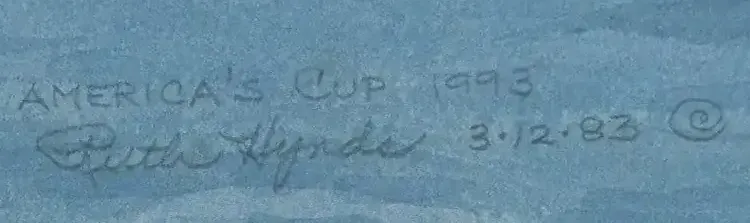 AMERICA'S CUP 1993
Ruth Hynds 3·12·83 ©